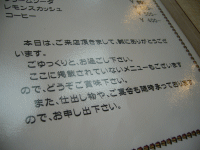 クリームソーダ
レモンスカッシュ
コーヒー
本日は、ご来店頂きまして、誠にありがとうござ
います。
ごゆっくりと、お過ごし下さい。
ここに掲載されていないメニューもございます
ので、どうぞご賞味下さい。
また、仕出し物や、ご宴会も随時承っております
ので、お申し出下さい。